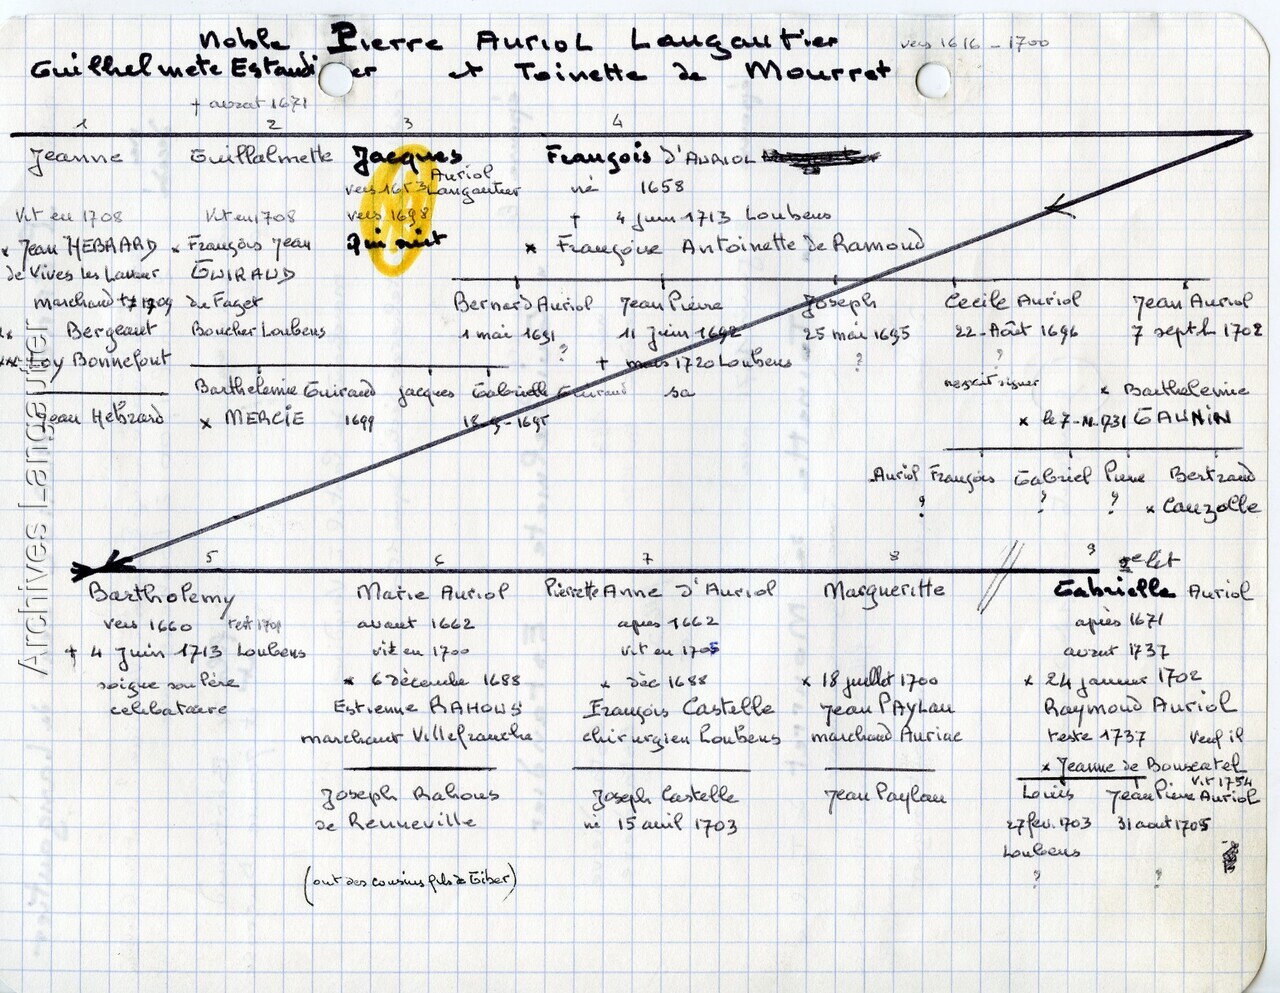 Noble Pierre Auriol Langautier vers 1616 - 1700
Guilhelmete Estandi er et Toinette de Mourret
† avant 1671
1 2 3 4
Jeanne
Vit en 1708
x Jean HEBRARD
de Vives les Lavaur
marchand
Bergeaut
Bonnefout
Jean Hebrard
Guillalmette
Vit en 1708
x François Jean
GUIRAUD
du Faget
Boucher Loubens
Barthelemie Guiraud Jacques Gabrielle Guiraud sa
x MERCIE 1699
Jacques
Auriol
vers 1653 Langautier
vers 1698
qui suit
François D'AURIOL
né 1658
† 4 juin 1713 Loubens
x Françoise Antoinette de Ramond
Bernard Auriol
1 mai 1691
?
Jean Pierre
11 juin 1692
† mars 1720 Loubens
Joseph
25 mai 1695
?
Cecile Auriol
22 Août 1696
?
ne sait signer
Jean Auriol
7 sept 1702
x Barthelemie
x le 7-11-1731 GAUNIN
Auriol François
?
Gabriel
?
Pierre
?
Bertrand
x Cauzolle
Archives Langautier
5 6 7 8 9
Bartholemy
vers 1660 test 1709
† 4 juin 1713 Loubens
soigne son Père
celibataire
Marie Auriol
avant 1662
vit en 1700
x 6 décembre 1688
Estienne RAHOUS
marchant Villefranche
Joseph Rahous
de Renneville
(ont des cousins fils de Giber)
Pierrette Anne D'Auriol
apres 1662
vit en 1705
x déc 1688
François Castelle
chirurgien Loubens
Joseph Castelle
né 15 avril 1703
Margueritte
x 18 juillet 1700
Jean PAYLAU
marchand Auriac
Jean Paylau
2e lit
Gabrielle Auriol
après 1671
avant 1737
x 24 janvier 1702
Raymond Auriol
teste 1737 veuf il
x Jeanne de Bouscatel
Vit 1754
Louis
27 fev. 1703
Loubens
?
Jean Pierre Auriol
31 aout 1705
?